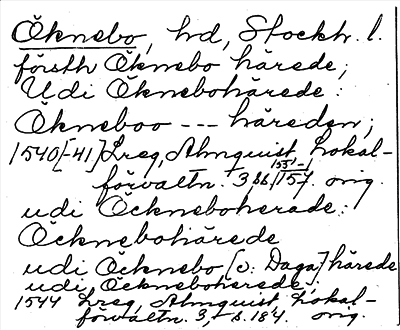 Öknebo, hd, Stockh. l.
försth Öknebo härede;
Udi Öknebohärede:
Öckneboo --- häreden;
1540[-41] Lreg, Almquist, Lokal-
förvaltn. 3, s. 157. orig.
udi Öckneboherade:
Öcknebohärade
udi Öcknebo [o: Daga] härede
udi Öckneboherede;
1544 Lreg, Almquist, Lokal-
förvaltn. 3, s. 184. orig.